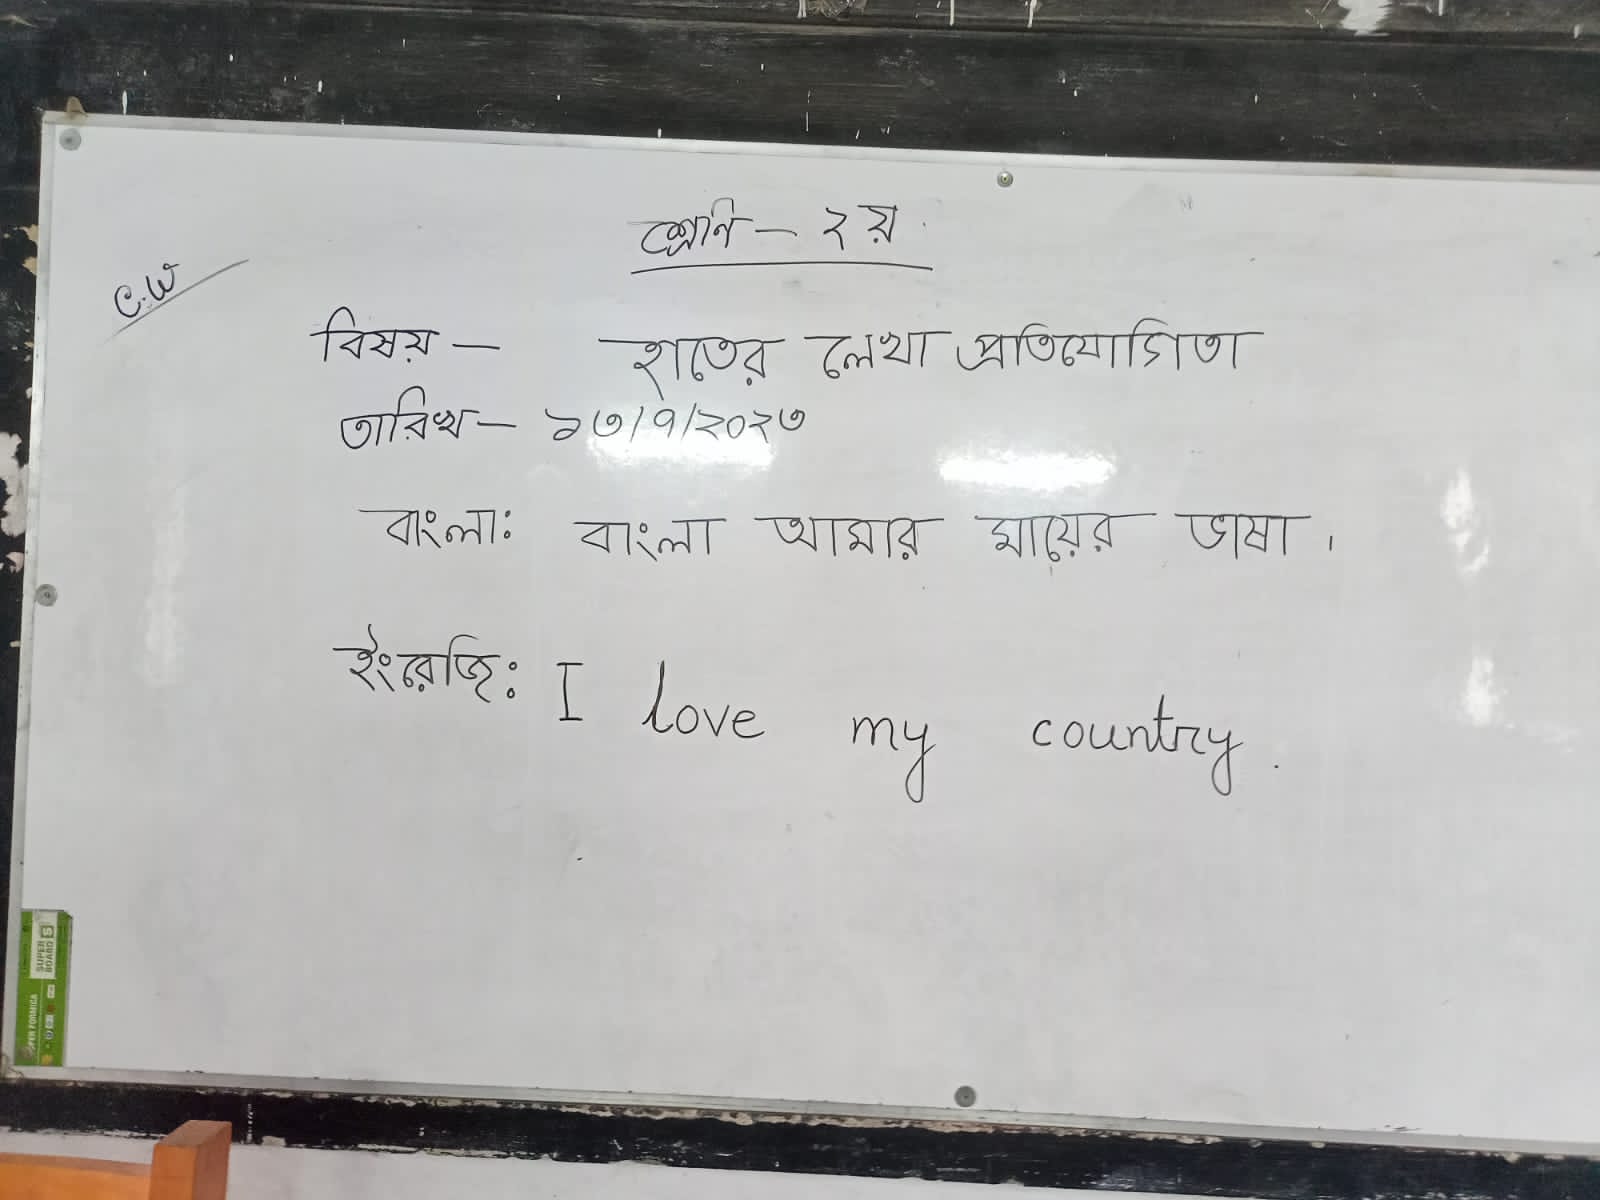 শ্রেণি - ২য়
C.W
বিষয় - হাতের লেখা প্রতিযোগিতা
তারিখ - ১৩/৭/২০২৩
বাংলা: বাংলা আমার মায়ের ভাষা।
ইংরেজি: I love my country.
SUPER BOARD S